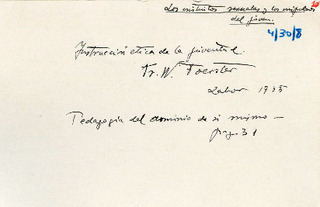 Los instintos sexuales y los impulsos
del joven.
4/30/8
Instrucción etica de la juventud.
Fr. W. Foerster
Labor 1935
Pedagogia del dominio de si mismo —
pag. 31